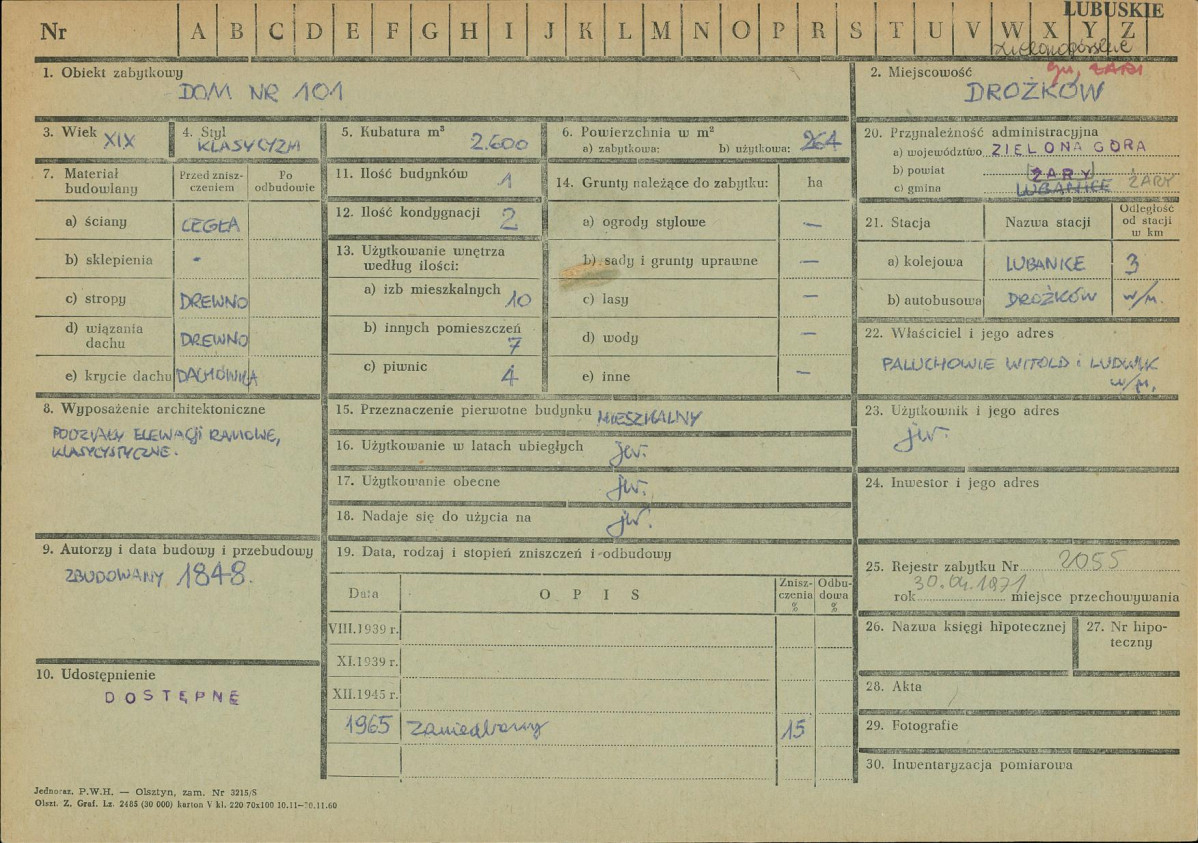 LUBUSKIE
Nr A B C D E F G H I J K L M N O P R S T U V W X Y Z
zielonogórskie
gm. ŻARY
1. Obiekt zabytkowy
DOM NR 101
2. Miejscowość
DROŻKÓW
3. Wiek XIX
4. Styl
KLASYCYZM
5. Kubatura m³
2.600
6. Powierzchnia w m²
a) zabytkowa: b) użytkowa: 264
20. Przynależność administracyjna
a) województwo ZIELONA GÓRA
b) powiat ŻARY
c) gmina LUBANICE ŻARY
7. Materiał budowlany
Przed zniszczeniem
Po odbudowie
a) ściany CEGŁA
b) sklepienia -
c) stropy DREWNO
d) wiązania dachu DREWNO
e) krycie dachu DACHÓWKA
11. Ilość budynków 1
12. Ilość kondygnacji 2
13. Użytkowanie wnętrza
według ilości:
a) izb mieszkalnych 10
b) innych pomieszczeń
7
c) piwnic 4
14. Grunty należące do zabytku: ha
a) ogrody stylowe —
b) sady i grunty uprawne —
c) lasy —
d) wody —
e) inne —
21. Stacja Nazwa stacji Odległość od stacji w km
a) kolejowa LUBANICE 3
b) autobusowa DROŻKÓW w/m.
22. Właściciel i jego adres
PALUCHOWIE WITOLD i LUDWIK
w/m.
8. Wyposażenie architektoniczne
PODZIAŁY ELEWACJI RAMOWE,
KLASYCYSTYCZNE.
15. Przeznaczenie pierwotne budynku MIESZKALNY
16. Użytkowanie w latach ubiegłych jw.
17. Użytkowanie obecne jw.
18. Nadaje się do użycia na jw.
23. Użytkownik i jego adres
jw.
24. Inwestor i jego adres
9. Autorzy i data budowy i przebudowy
ZBUDOWANY 1848.
19. Data, rodzaj i stopień zniszczeń i odbudowy
Data O P I S Zniszczenia % Odbudowa %
VIII.1939 r.
XI.1939 r.
XII.1945 r.
1965 zaniedbany 15
25. Rejestr zabytku Nr 2055
30.04.1971
rok miejsce przechowywania
26. Nazwa księgi hipotecznej
27. Nr hipoteczny
10. Udostępnienie
DOSTĘPNE
28. Akta
29. Fotografie
30. Inwentaryzacja pomiarowa
Jednoraz. P.W.H. — Olsztyn, zam. Nr 3215/S
Olszt. Z. Graf. Lz. 2485 (30 000) karton V kl. 220 70x100 10.11—20.11.60